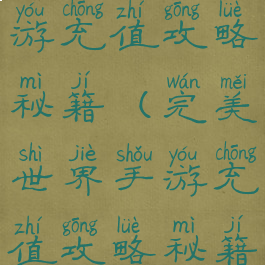 yóu chōng zhí gōng lüè
游充值攻略
mì jí wán měi
秘籍（完美
shì jiè shǒu yóu chōng
世界手游充
zhí gōng lüè mì jí
值攻略秘籍